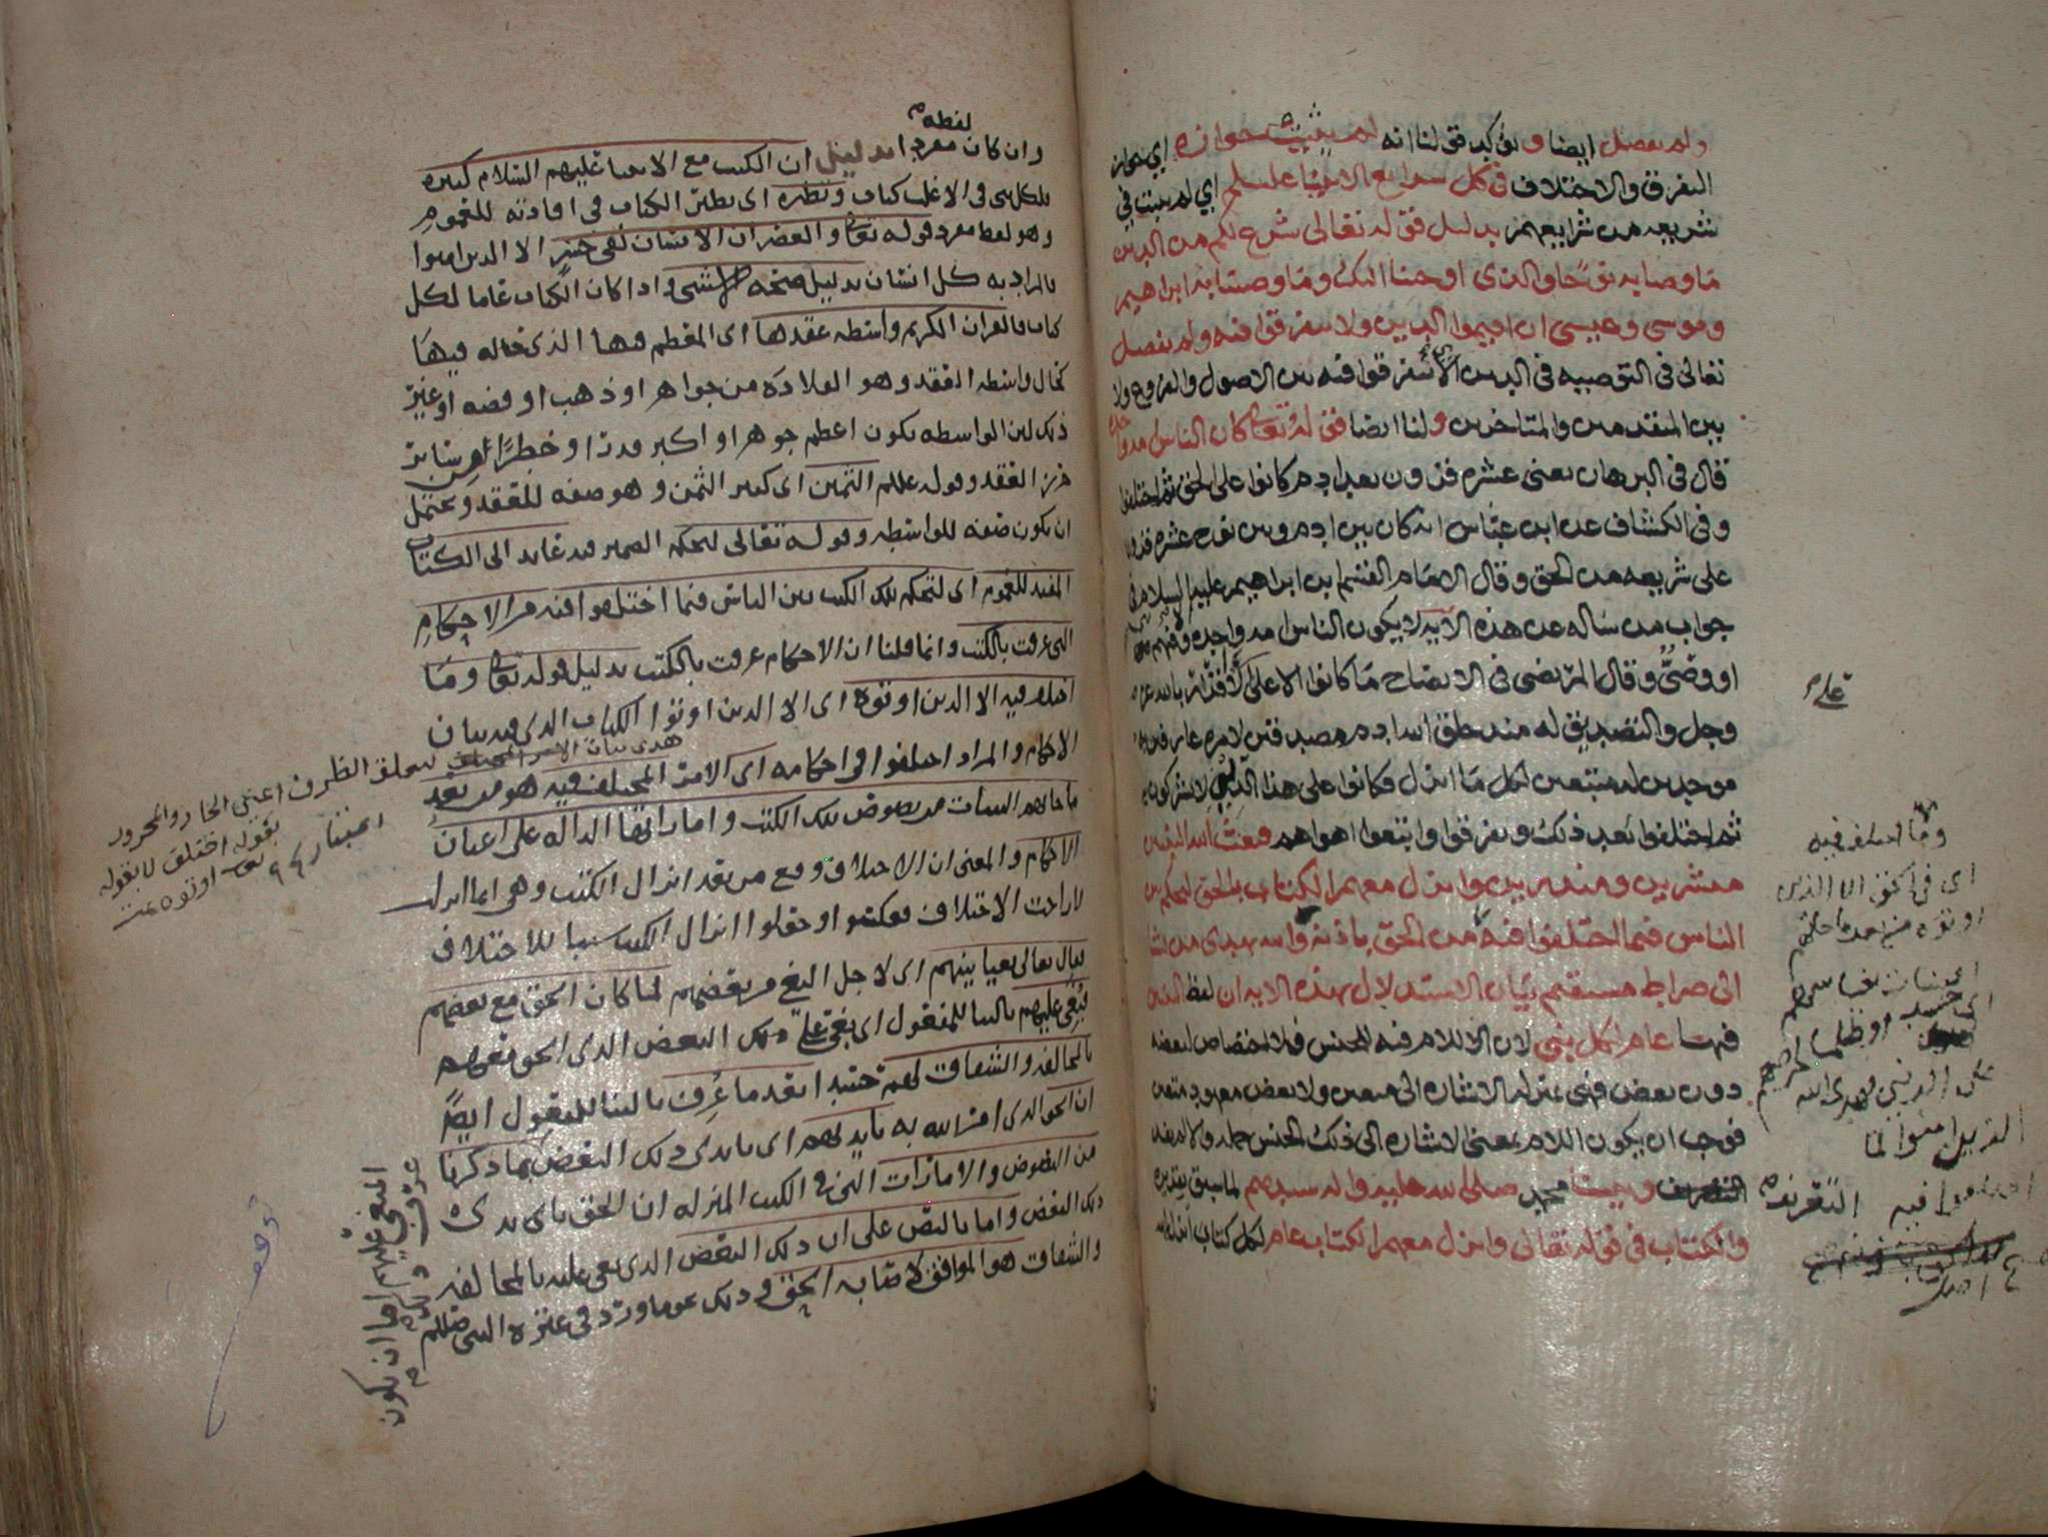 ولم يفصل ايضا ويؤكد قولنا انه لم يثبت جوازه اي جواز
التفرق والاختلاف في كل شرايع الانبيا عليهم اي لم يثبت في
شريعه من شرايعهم بدليل قوله تعالى شرع لكم من الدين
ما وصا به نوحا والذي اوحينا اليك وما وصينا به ابراهيم
وموسى وعيسى ان اقيموا الدين ولا تتفرقوا فيه ولم يفصل
تعالى في التوصيه في الدين الا تتفرقوا فيه بين الاصول والفروع ولا
بين المتقدمين والمتاخرين ولنا ايضا قوله تعالى كان الناس امه واحده
قال في البرهان يعني عشره قرون بعد ادم كانوا على الحق ثم اختلفوا
وفي الكشاف عن ابن عباس انه كان بين ادم وبين نوح عشره قرون
على شريعه من الحق وقال الامام القسم ابن ابراهيم عليهم السلام في
جواب من ساله عن هذه الايه لا يكون الناس امه واحده وفيهم
او وصيٌّ وقال المرتضى في الايضاح ما كانوا الا على الاقرار بالله عز
وجل والتصديق له منذ خلق الله ادم
موحدين له متبعين لكل ما انزل فكانوا على هذا الدين لا يشركون
ثم اختلفوا بعد ذلك وتفرقوا واتبعوا اهواهم فبعث الله النبيين
مبشرين ومنذرين وانزل معهم الكتاب بالحق ليحكم بين
الناس فيما اختلفوا فيه من الحق باذنه والله يهدي من يشا
الى صراط مستقيم بيان الاستدلال بهذه الايه ان لفظ النبيين
فيها عام لكل نبي لان اللام فيه للجنس فلا اختصاص لبعضه
دون بعض الاشاره الى معين ولا بعض معهود متعين
فوجب ان يكون اللام بمعنى الاشاره الى ذلك الجنس جمله
ونبينا محمد صلى الله عليه واله سيدهم لما سبق تقديره
والكتاب في قوله تعالى وانزل معهم الكتاب عام لكل كتاب انزله الله
علم
وما اختلف فيه
اي في الحق الا الذين
اوتوه من بعد ما جاتهم
البينات بغيا بينهم
اي حسدا وظلما لحرصهم
على الدنيى فهدى الله
الذين امنوا لما
اختلفوا فيه
التعريف
لفظه
وان كان مفردا بدليل ان الكتب مع الانبيا عليهم السلام كثيره
لا كلي في الاغلب كتاب ونظيره اي نظير الكتاب في افادته للعموم
وهو لفظ مفرد قوله تعالى والعصر ان الانسان لفي خسر الا الذين امنوا
فالمراد به كل انسان بدليل صحه الاستثنى واذا كان الكتاب عاما لكل
كتاب فالقران الكريم واسطه عقدها اي المعظم فيها الذي حاله فيها
كحال واسطه العقد وهو القلاده من جواهر او ذهب او فضه او غير
ذلك لان الواسطه تكون اعظم جوهرا واكبر قدرا وخطرًا من ساير
خرز العقد وقوله عليلم الثمين اي كثير الثمن وهو صفه للعقد ويحتمل
ان يكون صفه للواسطه وقوله تعالى ليحكم الضمير فيه عايد الى الكتاب
المفيد للعموم اي لتحكم تلك الكتب بين الناس فيما اختلفوا فيه من الاحكام
التي عرفت بالكتب وانما قلنا ان الاحكام عرفت بالكتب بدليل قوله تعالى وما
اختلف فيه الا الذين اوتوه اي الا الذين اوتوا الكتاب الذي فيه بيان
الاحكام والمراد اختلفوا في احكامه اي الامر المختلف فيه هو من بعد
ما جاتهم البينات من نصوص تلك الكتب واماراتها الداله على اعيان
الاحكام والمعنى ان الاختلاف وقع من بعد انزال الكتب وهي انما انزلت
لازاحت الاختلاف فعكسوا وجعلوا انزال الكتب سببا للاختلاف
قال تعالى بغيا بينهم اي لاجل البغي من بعضهم لما كان الحق مع بعضهم
بُغِي عليهم بالبنا للمفعول اي بغي على ذلك البعض الذي الحق معهم
بالمخالفه والشقاق لهم حسدا بعد ما عُرِف بالبنا للمفعول ايضًا
ان الحق الذي امر الله به بايديهم اي بايدي ذلك البعض بما ذكرنا
من النصوص والامارات التي في الكتب المنزله ان الحق بايدي
ذلك البعض واما بالنص على ان ذلك البعض الذي بغي عليه بالمخالفه
والشقاق هو الموافق لاصابه الحق وذلك نحو ما ورد في عتره النبي صللم
ليتعلق الظرف اعني الجار والمجرور
بقوله اختلف لا بقوله
اوتوه تمت
المبغي عليهم اما ان يكون
عرف